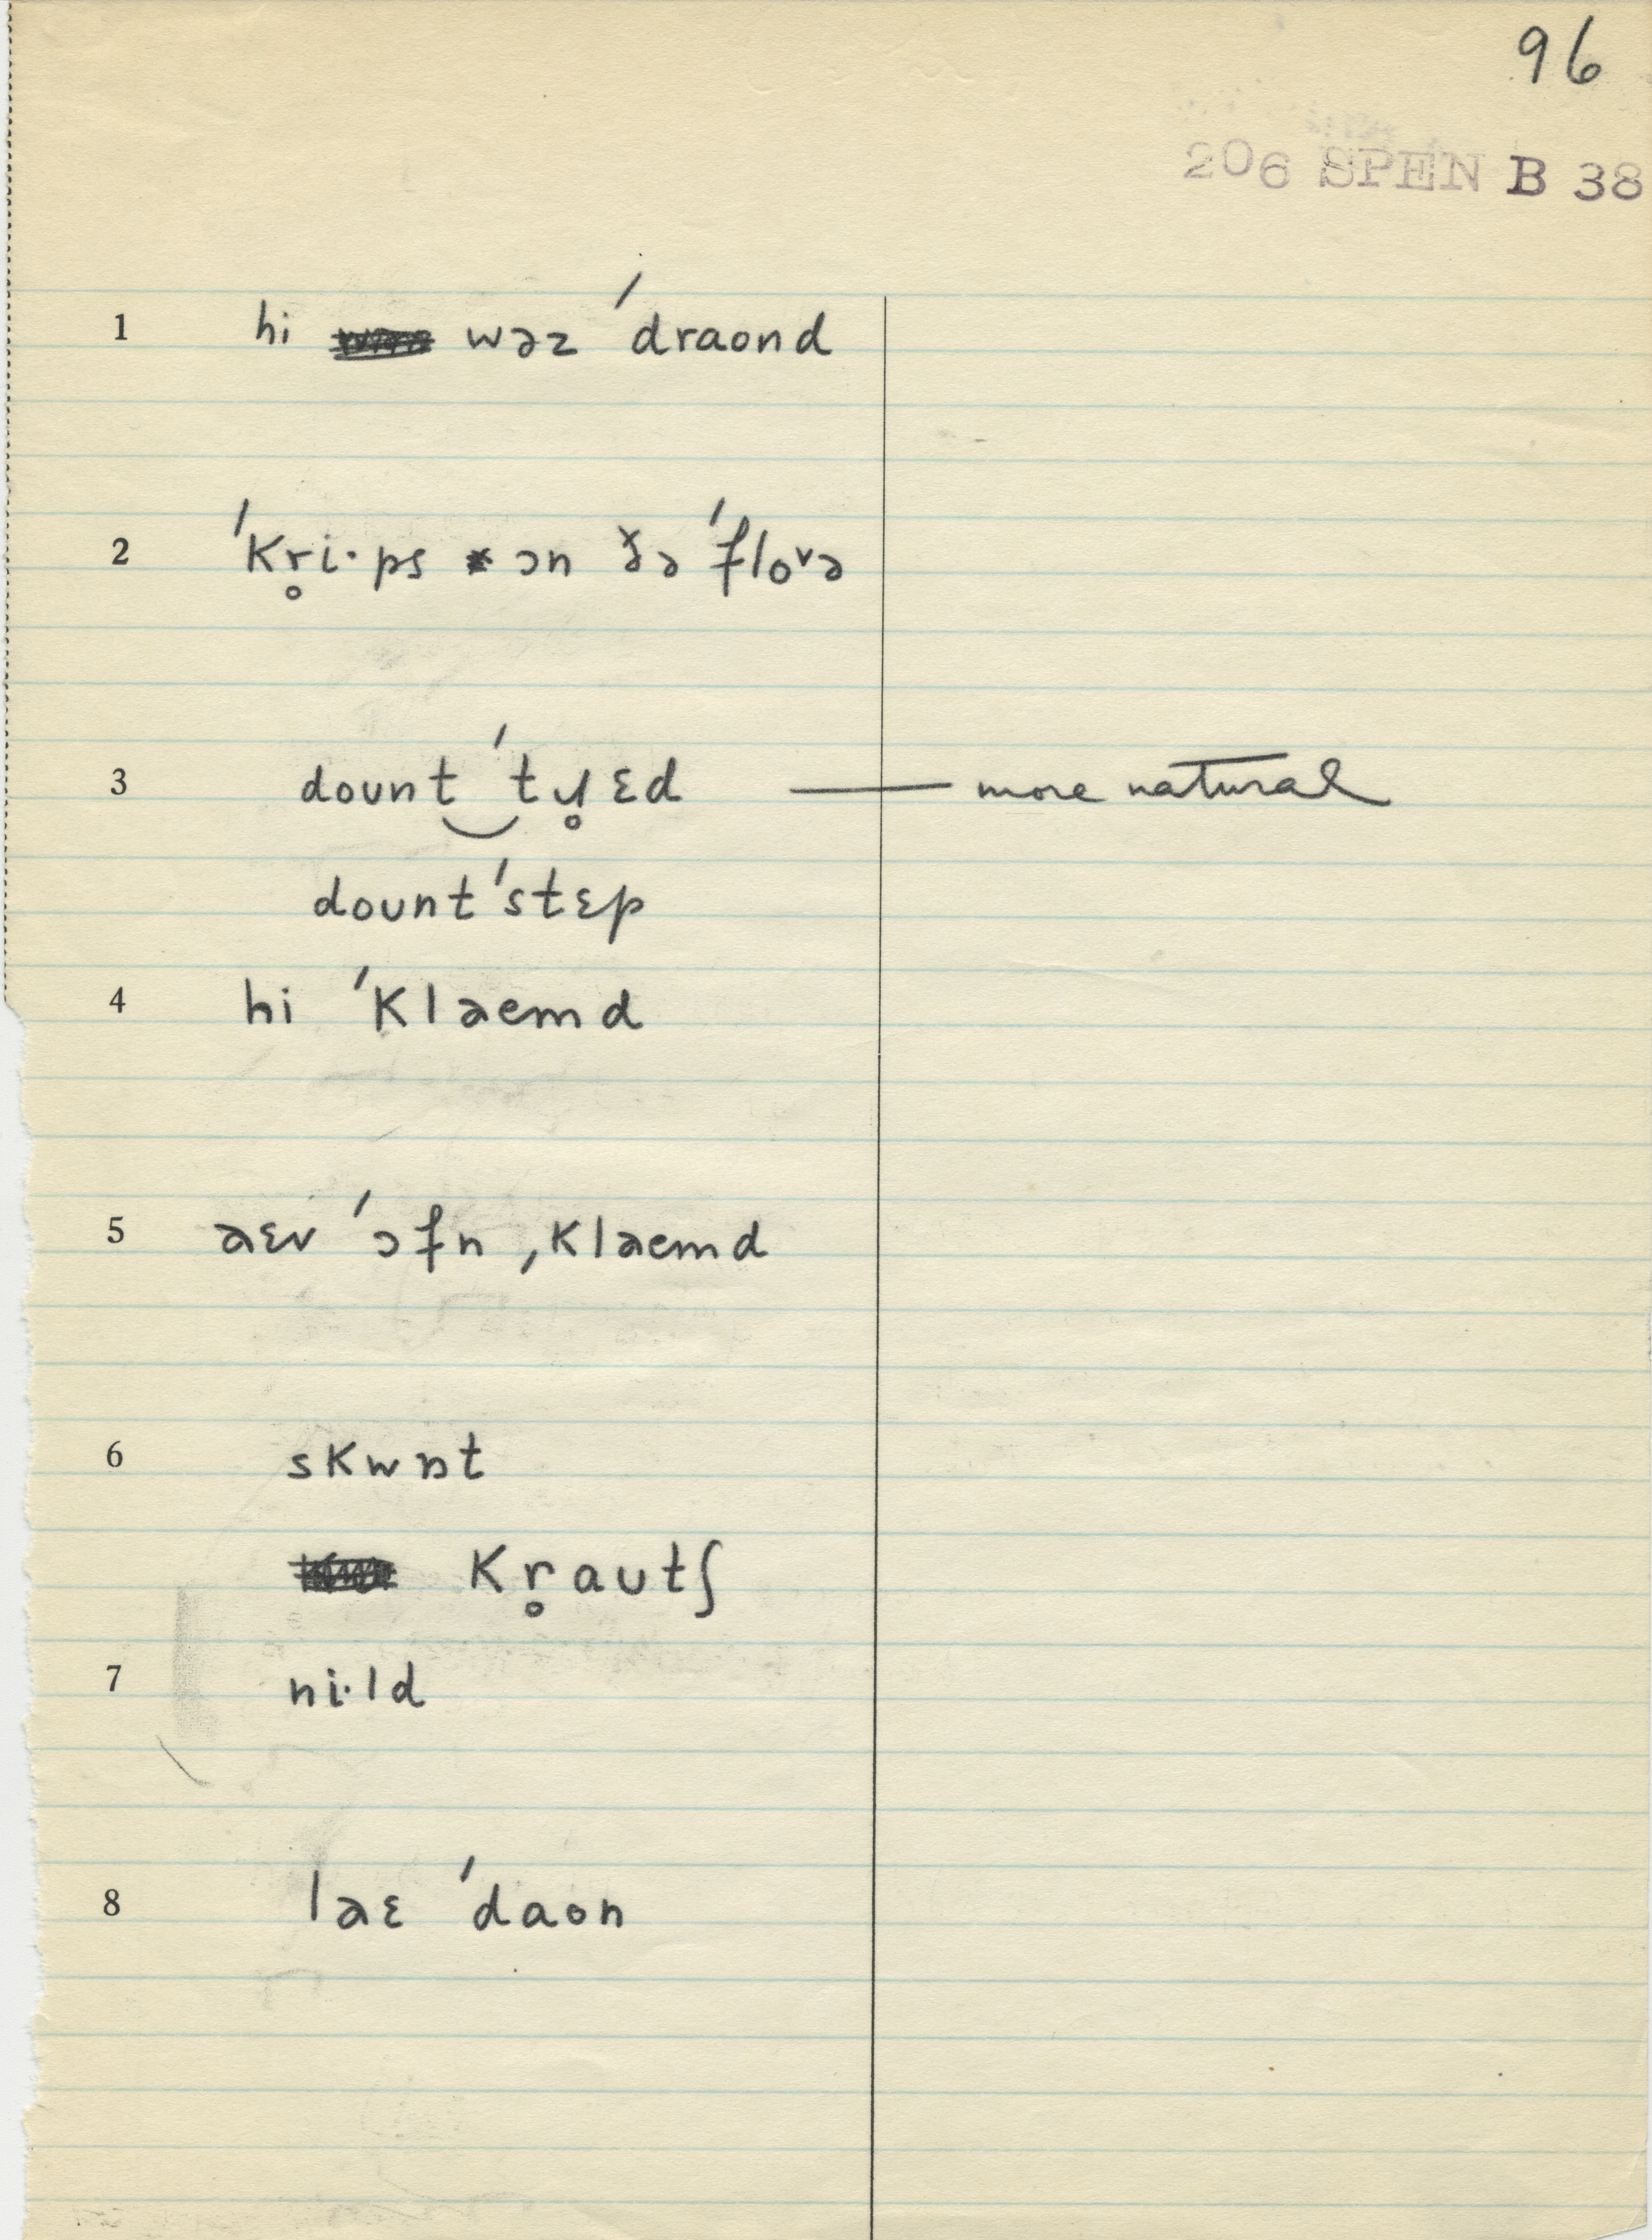 96
206 SPEN B 38
1 hi wəz ˈdraond
2 ˈkr̥i·ps ɔn ðə ˈfloᵛə
3 dount‿ˈtɹ̥ɛd — more natural
dount ˈstɛp
4 hi ˈklaemd
5 aɛv ˈɔfn ˌklaemd
6 skwɒt
kr̥autʃ
7 ni·ld
8 laɛ ˈdaon